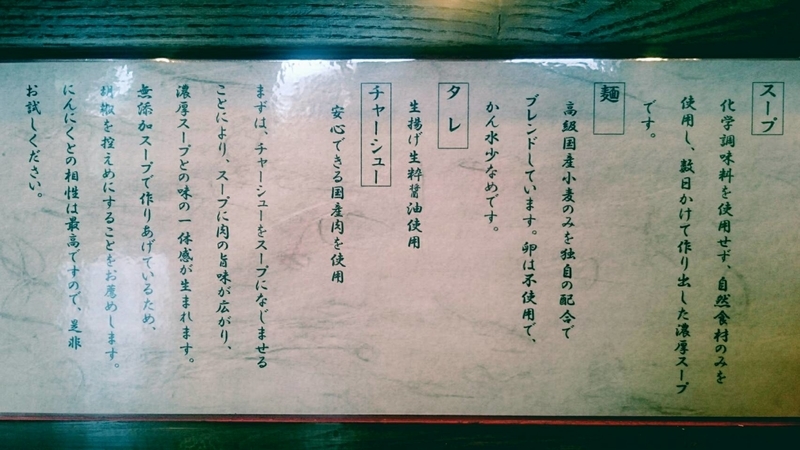 スープ
化学調味料を使用せず、自然食材のみを
使用し、数日かけて作り出した濃厚スープ
です。
麺
高級国産小麦のみを独自の配合で
ブレンドしています。卵は不使用で、
かん水少なめです。
タレ
生揚げ生粋醤油使用
チャーシュー
安心できる国産肉を使用
まずは、チャーシューをスープになじませる
ことにより、スープに肉の旨味が広がり、
濃厚スープとの味の一体感が生まれます。
無添加スープで作りあげているため、
胡椒を控えめにすることをお薦めします。
にんにくとの相性は最高ですので、是非
お試しください。